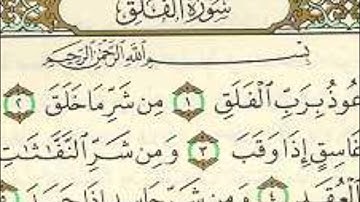 سُورَةُ الْفَلَقِ
بِسْمِ اللَّهِ الرَّحْمَٰنِ الرَّحِيمِ
عُوذُ بِرَبِّ الْفَلَقِ ١ مِن شَرِّ مَا خَلَقَ ٢
غَاسِقٍ إِذَا وَقَبَ ٣ وَمِن شَرِّ النَّفَّاثَاتِ
الْعُقَدِ ٤ وَمِن شَرِّ حَاسِدٍ إِذَا حَسَدَ